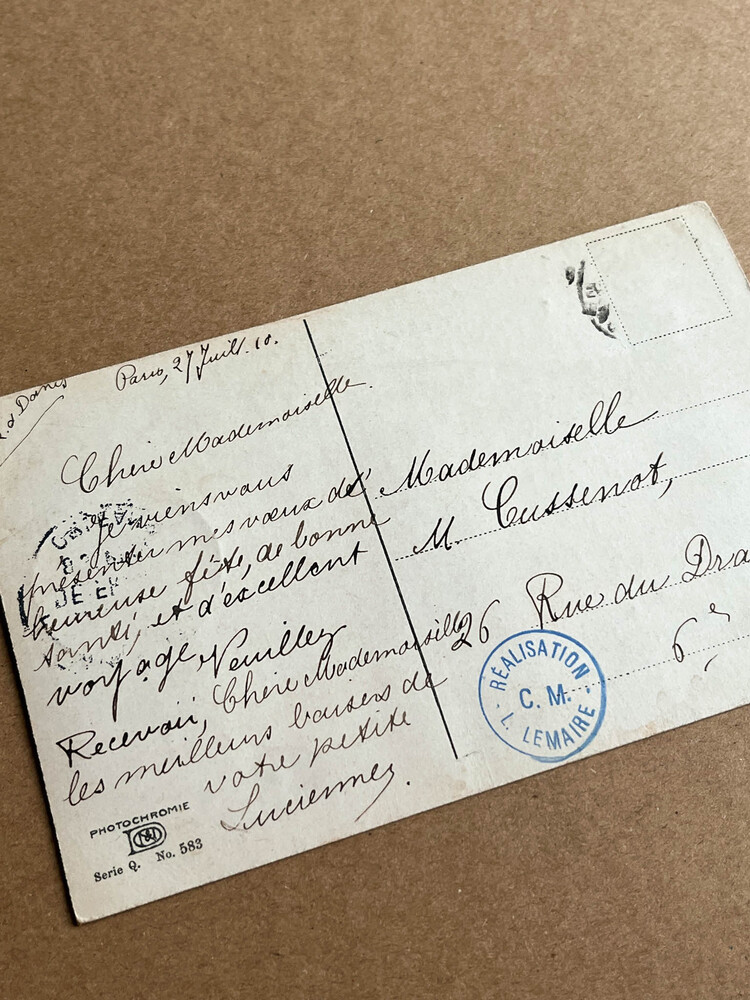 Paris, 27 Juill. 10.
Chère Mademoiselle.
Je viens vous
présenter mes vœux de
heureuse fête, de bonne
santé, et d'excellent
voyage. Veuillez
Recevoir, Chère Mademoiselle
les meilleurs baisers de
votre petite
Lucienne.
PHOTOCHROMIE
Serie Q. No. 583
Mademoiselle
M. Cussenot,
26 Rue du Dra
6e
RÉALISATION
C. M.
L. LEMAIRE